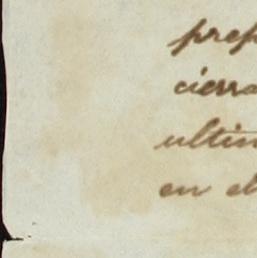 prep
cierra
ultim
en el